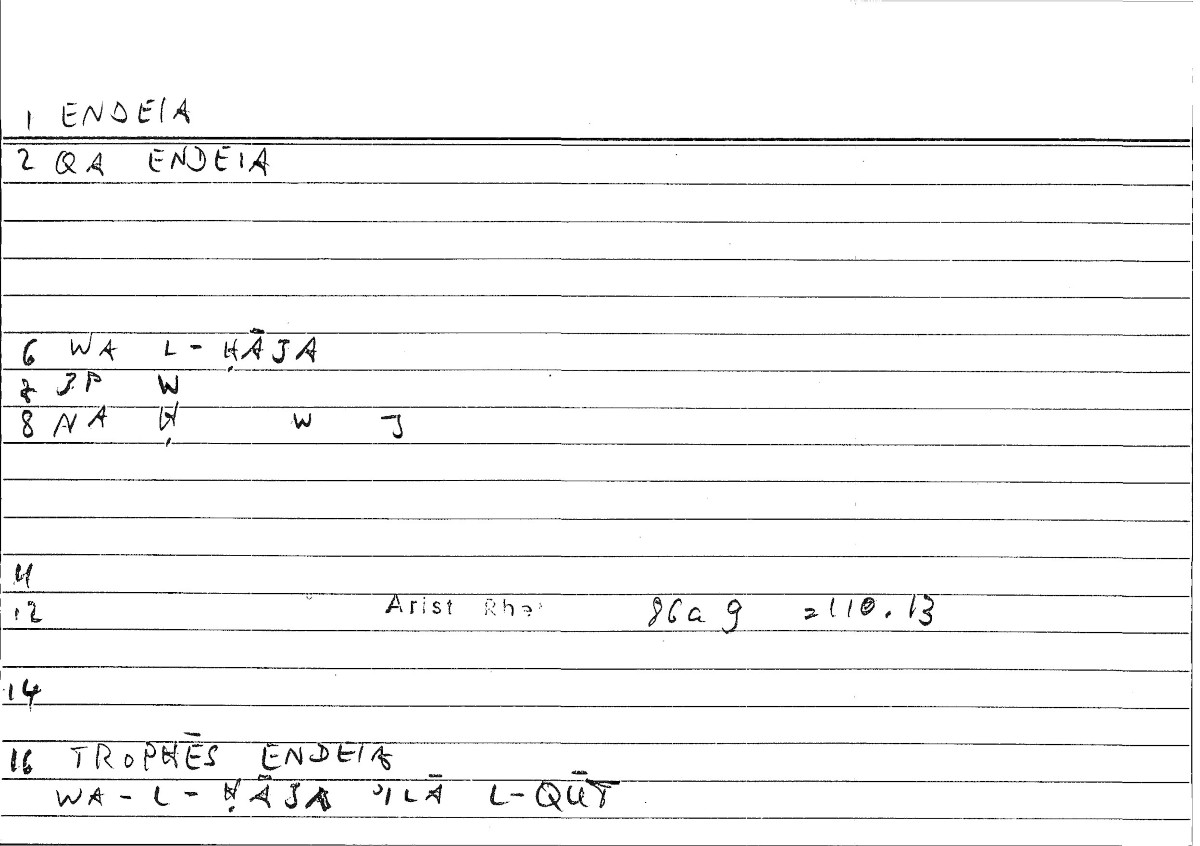 1 ENDEIA
2 QA ENDEIA
6 WA L-ḤĀJA
JP W
8 NA Ḥ W J
12 Arist Rhe 86a9 =110.13
14
16 TROPHĒS ENDEIA
WA-L-ḤĀJA ʾILĀ L-QŪT